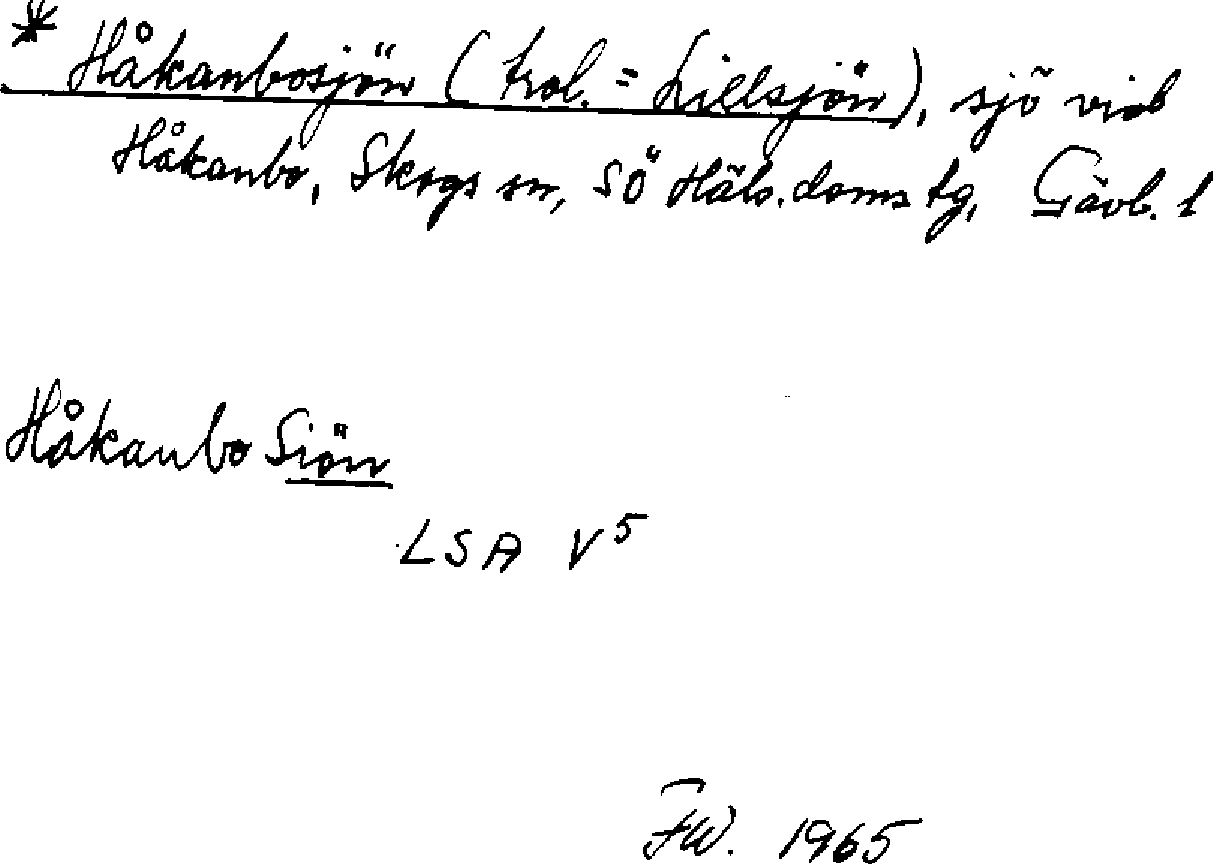 * Håkanbosjön (trol. = Lillsjön), sjö vid
Håkanbo, Skogs sn, SÖ Häls. doms tg, Gävl. l
Håkanbo Siön
LSA V⁵
FW. 1965